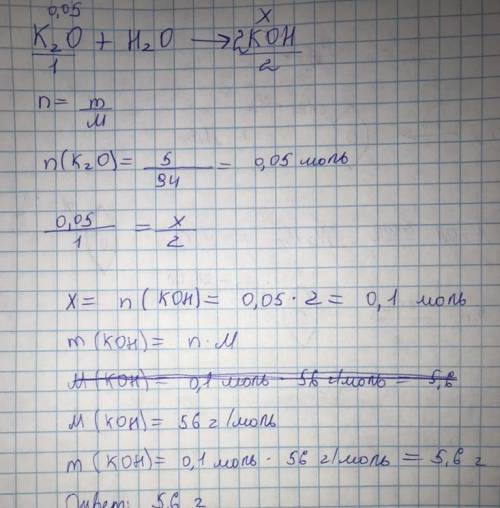 0,05 x
K₂O + H₂O → 2KOH
1 2
n = m/M
n(K₂O) = 5/94 = 0,05 моль
0,05/1 = x/2
x = n (KOH) = 0,05 · 2 = 0,1 моль
m (KOH) = n · M
M (KOH) = 0,1 моль · 56 г/моль = 5,6
M (KOH) = 56 г/моль
m (KOH) = 0,1 моль · 56 г/моль = 5,6 г
Ответ: 5,6 г